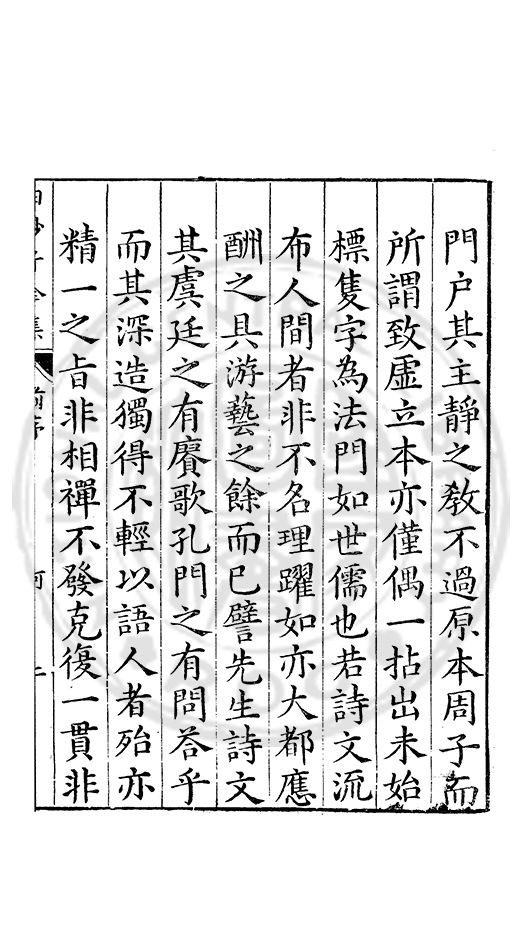 門户其主靜之教不過原本周子而
所謂致虛立本亦僅偶一拈出未始
標隻字為法門如世儒也若詩文流
布人間者非不名理躍如亦大都應
酬之具游藝之餘而已譬先生詩文
其虞廷之有賡歌孔門之有問荅乎
而其深造獨得不輕以語人者殆亦
精一之旨非相禪不發克復一貫非
白沙子全集 前序 二